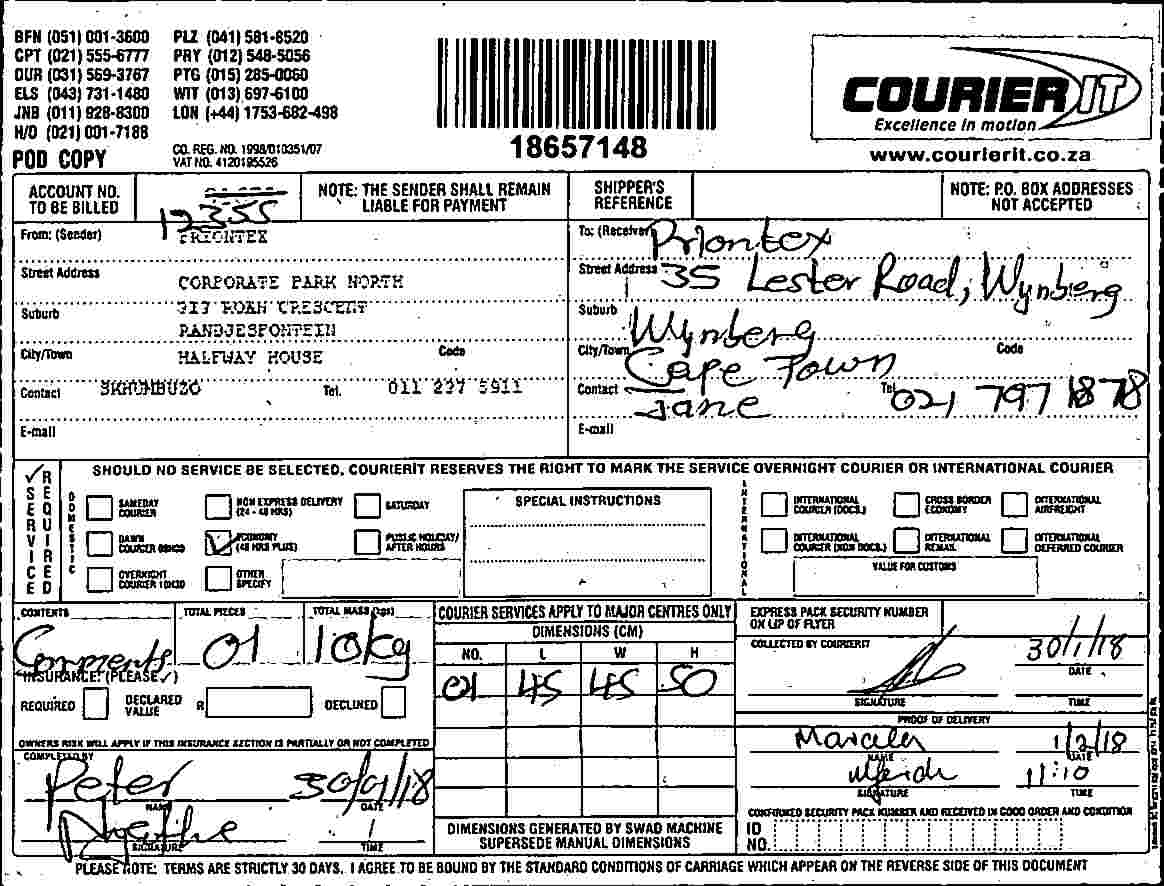 BFN (051) 001-3600 PLZ (041) 581-8520
CPT (021) 555-6777 PRY (012) 548-5056
DUR (031) 569-3767 PTG (015) 285-0060
ELS (043) 731-1480 WIT (013) 697-6100
JNB (011) 928-8300 LON (+44) 1753-682-498
H/O (021) 001-7188
POD COPY
CO. REG. NO. 1998/010351/07
VAT NO. 4120195526
18657148
COURIER IT
Excellence in motion
www.courierit.co.za
ACCOUNT NO. TO BE BILLED
12355
NOTE: THE SENDER SHALL REMAIN LIABLE FOR PAYMENT
SHIPPER'S REFERENCE
NOTE: P.O. BOX ADDRESSES NOT ACCEPTED
From: (Sender) PRIONTEX
Street Address CORPORATE PARK NORTH
Suburb 313 ROAN CRESCENT
RANDJESFONTEIN
City/Town HALFWAY HOUSE Code
Contact SKHUMBUZO Tel. 011 237 5911
E-mail
To: (Receiver) Priontex
Street Address 35 Lester Road, Wynberg
Suburb Wynberg
City/Town Cape Town Code
Contact Jane Tel 021 797 1878
E-mail
SERVICE REQUIRED
SHOULD NO SERVICE BE SELECTED, COURIERIT RESERVES THE RIGHT TO MARK THE SERVICE OVERNIGHT COURIER OR INTERNATIONAL COURIER
DOMESTIC
SAMEDAY COURIER
NON EXPRESS DELIVERY (24 - 48 HRS)
SATURDAY
DAWN COURIER
ECONOMY (48 HRS PLUS)
PUBLIC HOLIDAY/ AFTER HOURS
OVERNIGHT COURIER 10H30
OTHER SPECIFY
SPECIAL INSTRUCTIONS
INTERNATIONAL
INTERNATIONAL COURIER (DOCS.)
CROSS BORDER ECONOMY
INTERNATIONAL AIRFREIGHT
INTERNATIONAL COURIER (NON DOCS.)
INTERNATIONAL REMAIL
INTERNATIONAL DEFERRED COURIER
VALUE FOR CUSTOMS
CONTENTS TOTAL PIECES TOTAL MASS (kgs)
01 10kg
INSURANCE: (PLEASE ✓)
REQUIRED DECLARED VALUE R DECLINED
OWNERS RISK WILL APPLY IF THIS INSURANCE SECTION IS PARTIALLY OR NOT COMPLETED
COMPLETED BY
Peter 30/01/18
NAME DATE
SIGNATURE TIME
COURIER SERVICES APPLY TO MAJOR CENTRES ONLY
DIMENSIONS (CM)
NO. L W H
01 45 45 50
DIMENSIONS GENERATED BY SWAD MACHINE SUPERSEDE MANUAL DIMENSIONS
EXPRESS PACK SECURITY NUMBER ON LIP OF FLYER
COLLECTED BY COURIERIT
30/1/18
DATE
SIGNATURE TIME
PROOF OF DELIVERY
1/2/18
NAME DATE
11:10
SIGNATURE TIME
CONFIRMED SECURITY PACK NUMBER AND RECEIVED IN GOOD ORDER AND CONDITION
ID NO.
PLEASE NOTE: TERMS ARE STRICTLY 30 DAYS. I AGREE TO BE BOUND BY THE STANDARD CONDITIONS OF CARRIAGE WHICH APPEAR ON THE REVERSE SIDE OF THIS DOCUMENT